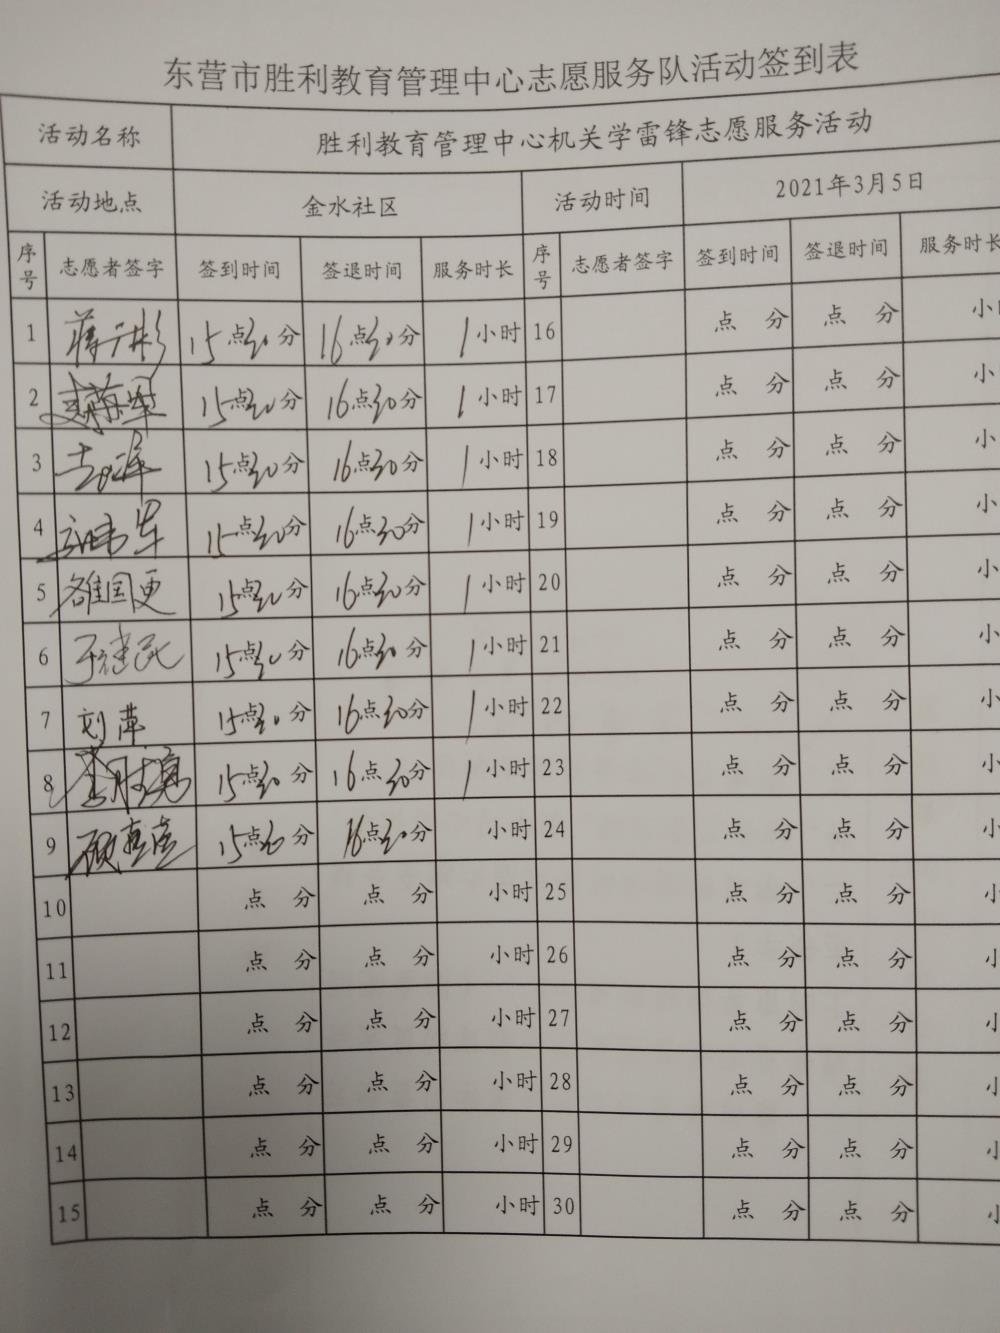 东营市胜利教育管理中心志愿服务队活动签到表
活动名称 胜利教育管理中心机关学雷锋志愿服务活动
活动地点 金水社区 活动时间 2021年3月5日
序号 志愿者签字 签到时间 签退时间 服务时长 序号 志愿者签字 签到时间 签退时间 服务时长
1 蒋广彬 15点30分 16点30分 1小时 16 点 分 点 分 小
2 15点30分 16点30分 1小时 17 点 分 点 分 小
3 15点30分 16点30分 1小时 18 点 分 点 分 小
4 15点30分 16点30分 1小时 19 点 分 点 分 小
5 雒国更 15点30分 16点30分 1小时 20 点 分 点 分 小
6 于建民 15点30分 16点30分 1小时 21 点 分 点 分 小
7 刘萍 15点30分 16点30分 1小时 22 点 分 点 分 小
8 15点30分 16点30分 1小时 23 点 分 点 分 小
9 15点30分 16点30分 小时 24 点 分 点 分 小
10 点 分 点 分 小时 25 点 分 点 分 小
11 点 分 点 分 小时 26 点 分 点 分 小
12 点 分 点 分 小时 27 点 分 点 分 小
13 点 分 点 分 小时 28 点 分 点 分 小
14 点 分 点 分 小时 29 点 分 点 分 小
15 点 分 点 分 小时 30 点 分 点 分 小